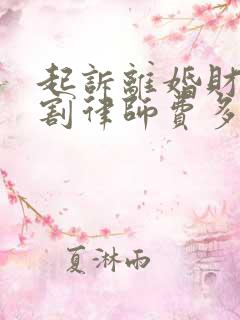 起訴離婚財
割律師費多
夏淋雨